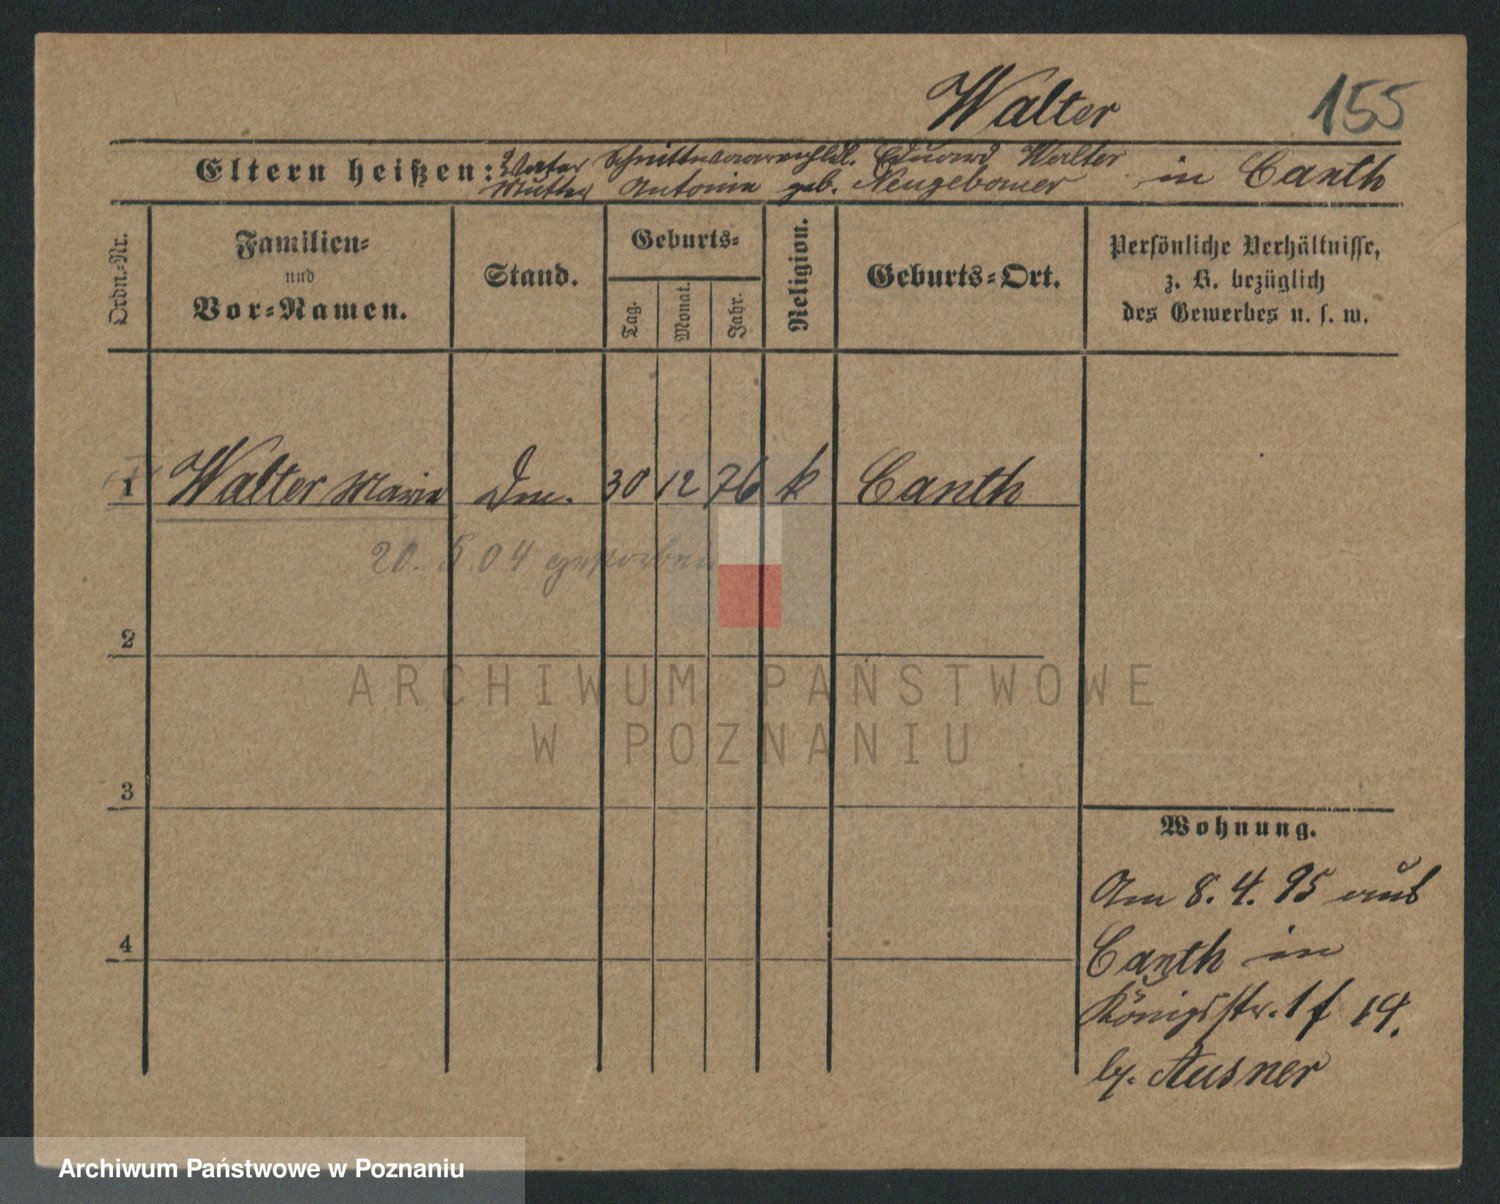 Walter 155
Eltern heißen: Vater Schnittwaarenhdl. Eduard Walter in Canth
Mutter Antonie geb. Neugebauer
Ordn.-Nr.
Familien-
und
Vor-Namen.
Stand.
Geburts-
Tag.
Monat.
Jahr.
Religion.
Geburts-Ort.
Persönliche Verhältnisse,
z. B. bezüglich
des Gewerbes u. s. w.
1 Walter Marie 30 12 76 k Canth
20. 5. 04 gestorben
2
3
4
Wohnung.
Am 8. 4. 95 aus
Canth in
Königsstr. 19.
by. Ausner
ARCHIWUM PAŃSTWOWE
W POZNANIU
Archiwum Państwowe w Poznaniu